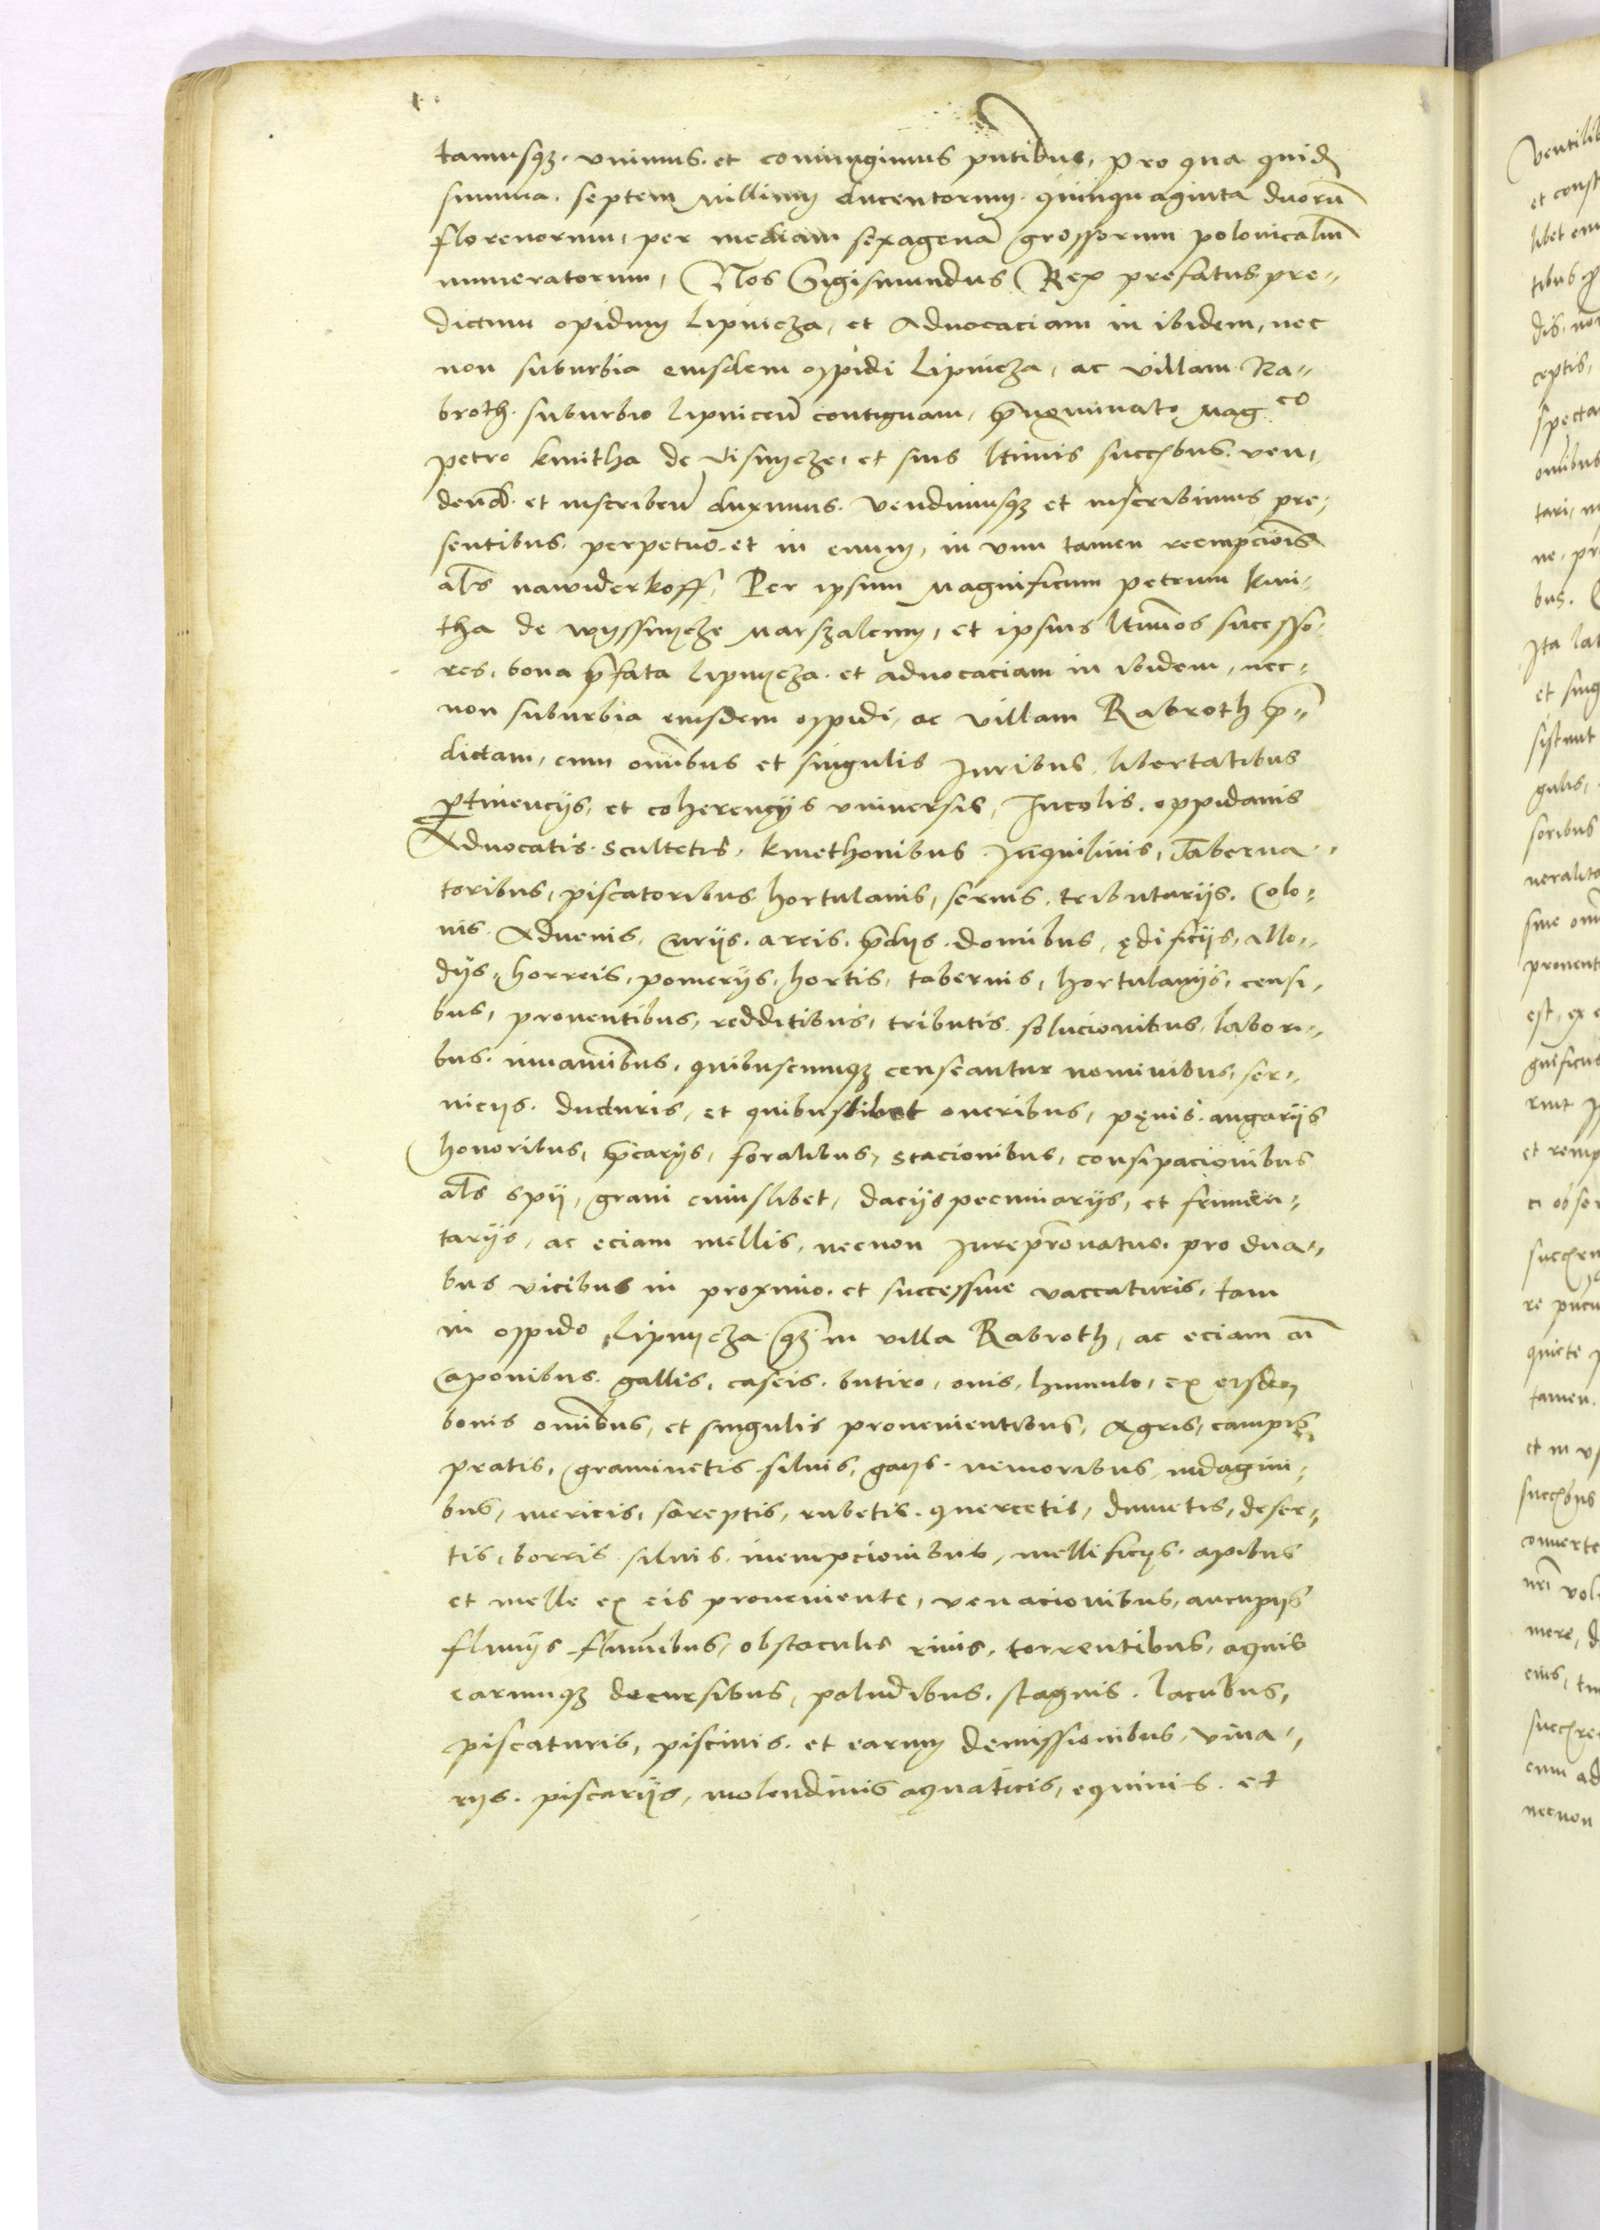 tamusqz. vnimus. et coniungimus pntibus, Pro qua quid
summa. septem Millium ducentorum. quinquaginta duorū
florenorum, per mediam sexagenā grossorum polonicaliū
numeratorum, Nos Sigismundus Rex prefatus pre,,
dictum opidum Lipnicza, et Aduocaciam in ibidem, nec
non suburbia eiusdem oppidi Lipnicza, ac villam Ra,,
broth. suburbio Lipniceñ contiguam, p̄nominato Mag co
petro kmitha de Visnycze, et suis ltimis succ̄bus. ven,
dend. et inscribeñ duximus. Vendimusqz et inscribimus pre,
sentibus. perpetuo. et in euum, in vim tamen reempcionis
als nawiderkoff, Per ipsum Magnificum petrum kmi,
tha de wyssnycze Marszalcum, et ipsius ltimos sucesso,
res, bona p̄fata Lipnycza. et aduocaciam in ibidem, nec,,
non suburbia eiusdem oppidi, ac villam Rabroth p̄,,
dictam, cum omibus et singulis Iuribus, libertatibus
ptinencijs, et coherencijs vniuersis, Incolis. oppidanis
Aduocatis. scultetis, kmethonibus. Inquilinis, Taberna,,
toribus, piscatoribus hortulanis, seruis. tributarijs. Colo,
nis. Aduenis, Curijs. areis. p̄dijs. domibus, ędificijs, Allo,,
dijs, horreis, pomerijs, hortis, tabernis, hortulanijs, censi,
bus, prouentibus, redditibus, tributis. solucionibus, labori,,
bus. iuuaminibus, quibuscumqz censeantur nominibus, ser,,
uicijs. ducturis, et quibuslibet oneribus, pęnis. angarijs
honoribus, p̄carijs, foralibus, stacionibus, consipacionibus
als spij, grani cuiuslibet, dacijs pecuniarijs, et frumen,,
tarijs, ac eciam mellis, necnon Iurepronatus. pro dua,,
bus vicibus in proximo. et successiue vaccaturis, tam
in oppido Lipnycza qz in villa Rabroth, ac eciam cū
Caponibus. gallis, caseis. butiro, ouis, humulo, ex eisdem
bonis omibus, et singulis prouenientibus, Agris, campis,
pratis, graminetis siluis, gays. nemoribus, indagini,
bus, mericis, sareptis, rubetis. quercetis, dumetis, deser,,
tis, borris. siluis. inempcionibus, mellificijs. apibus
et melle ex eis proueniente, venacionibus, aucupijs
fluuijs fluminibus, obstaculis riuis, torrentibus, aquis
earumqz decursibus, paludibus. stagnis. lacubus,
piscaturis, piscinis. et earum demissionibus, viua,,
rijs. piscarijs, molendinis aquaticis, equinis. et